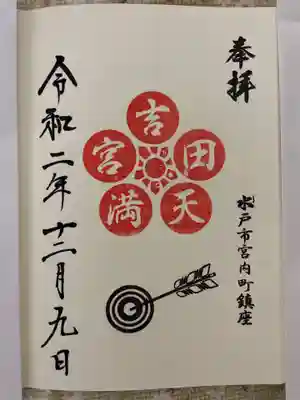 奉拝
水戸市宮内町鎮座
吉田天満宮
令和二年十二月九日